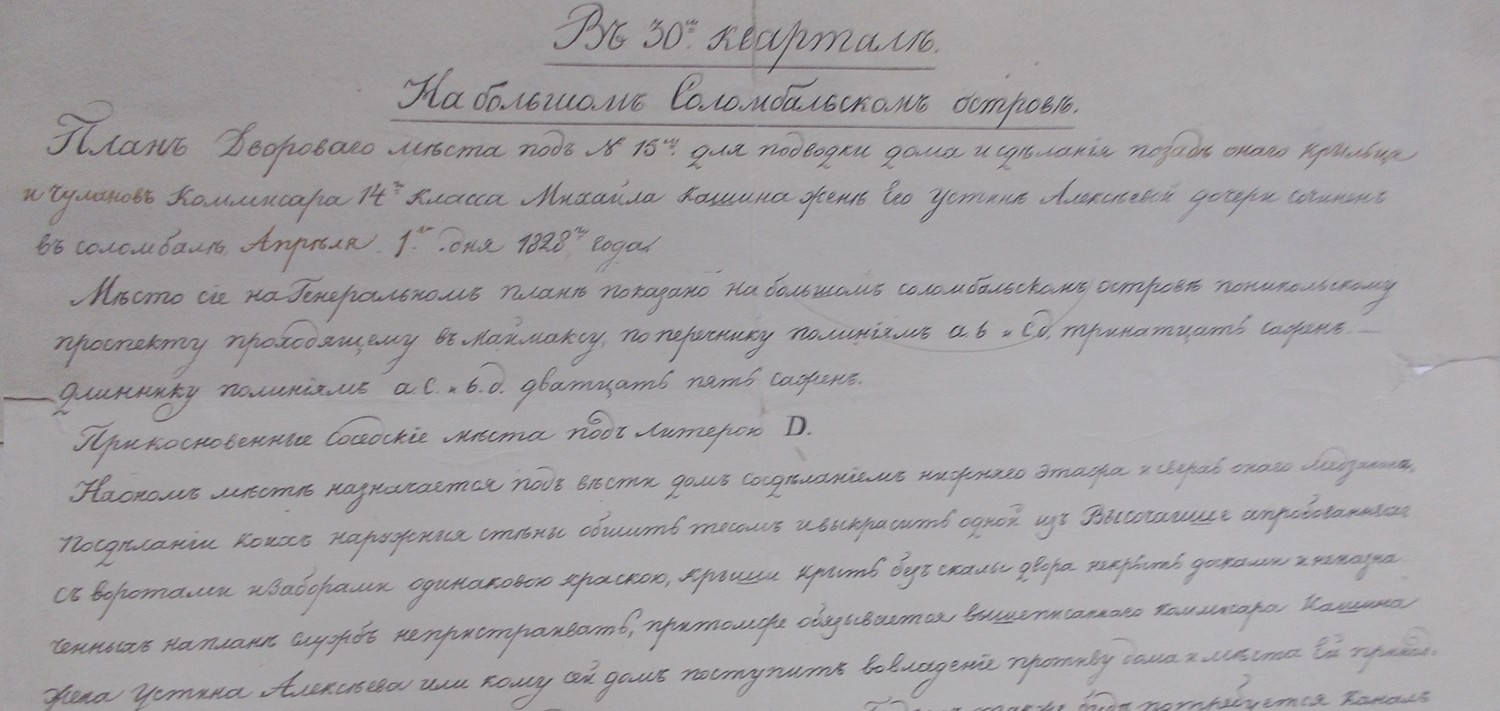 Въ 30м. кварталѣ.
На большомъ Соломбальскомъ островѣ.
Планъ Двороваго мѣста подъ № 15м. для подводки дома и сдѣланія позадь онаго крыльца
и чулановъ Коммисара 14го класса Михайла Кашина женѣ Его Устинѣ Алексѣевой дочери сочиненъ
въ соломбалѣ, Апрѣля 1го дня 1828го года.
Мѣсто сіе на Генеральномъ планѣ показано на большомъ соломбальскомъ островѣ поникольскому
проспекту проходящему въ маймаксу, по перечнику полиніямъ a.b и Cd, тринатцать сажень.—
длиннику полиніямъ a.C. и b.d. дватцать пять саженъ.
Прикосновенные соседскіе мѣста подъ литерою D.
Наономъ мѣстѣ назначается подъ вѣсти домъ сосдѣланіемъ нижняго этажа и онаго
Посдѣланіи коихъ наружныя стѣны обшить тесомъ ивыкрасить одной изъ Высочайше апробованныхъ
съ воротами изаборами одинаковою краскою, крыши крыть безъ скалы двора некрыть досками и неназна
ченныхъ напланѣ службъ непристраивать, притомже обязывается вышеписаннаго коммисара Кашина
жена Устина Алексѣева или кому сей домъ поступитъ вовладеніе противу дома и мѣста Ей
также будь потребуется каналъ